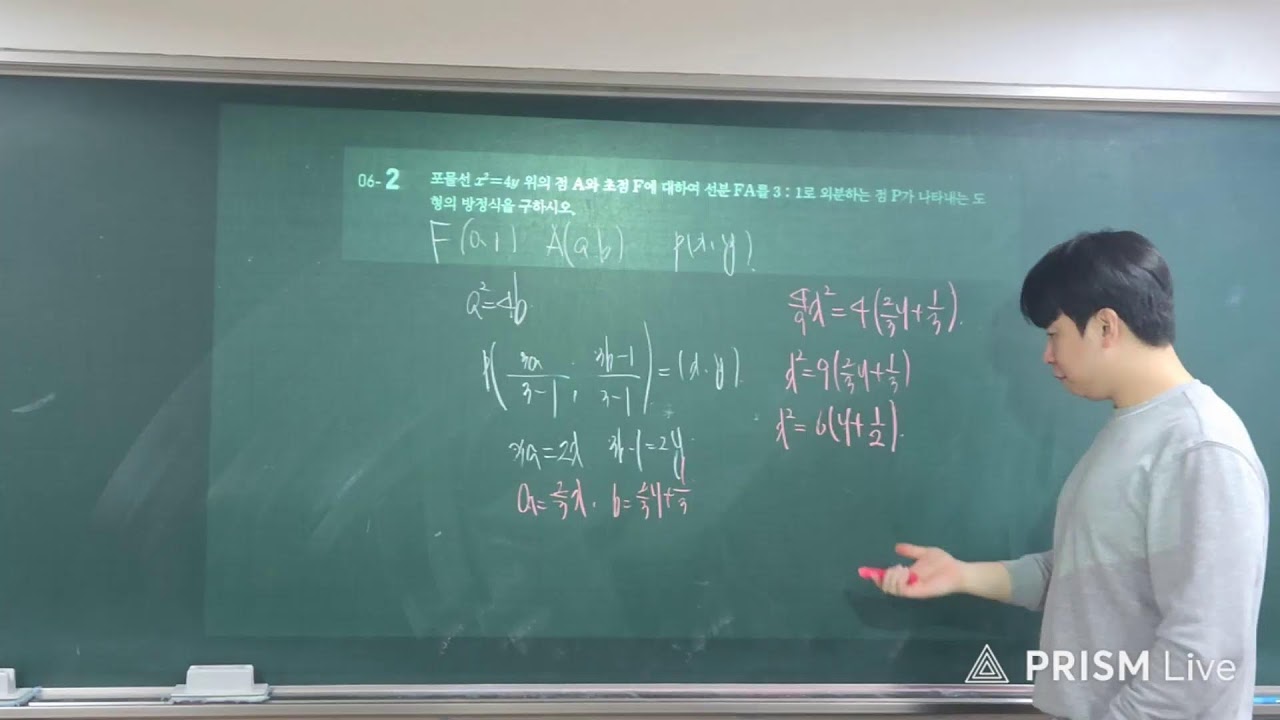 06-2 포물선 x²=4y 위의 점 A와 초점 F에 대하여 선분 FA를 3 : 1로 외분하는 점 P가 나타내는 도
형의 방정식을 구하시오.
F(0,1) A(a,b) P(x,y)
a²=4b
P(3a/3-1, 3b-1/3-1)=(x,y)
3a=2x 3b-1=2y
a=2/3x, b=2/3y+1/3
4/9x²=4(2/3y+1/3).
x²=9(2/3y+1/3)
x²=6(y+1/2).
PRISM Live